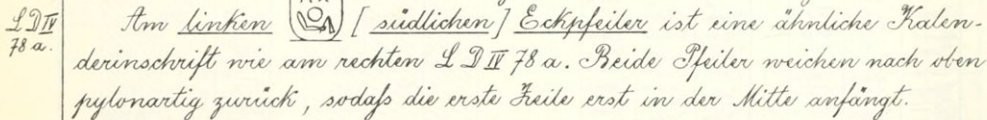 LD IV
78 a.
Am linken [südlichen] Eckpfeiler ist eine ähnliche Kalen-
derinschrift wie am rechten L D IV 78 a. Beide Pfeiler weichen nach oben
pylonartig zurück, sodaß die erste Zeile erst in der Mitte anfängt.